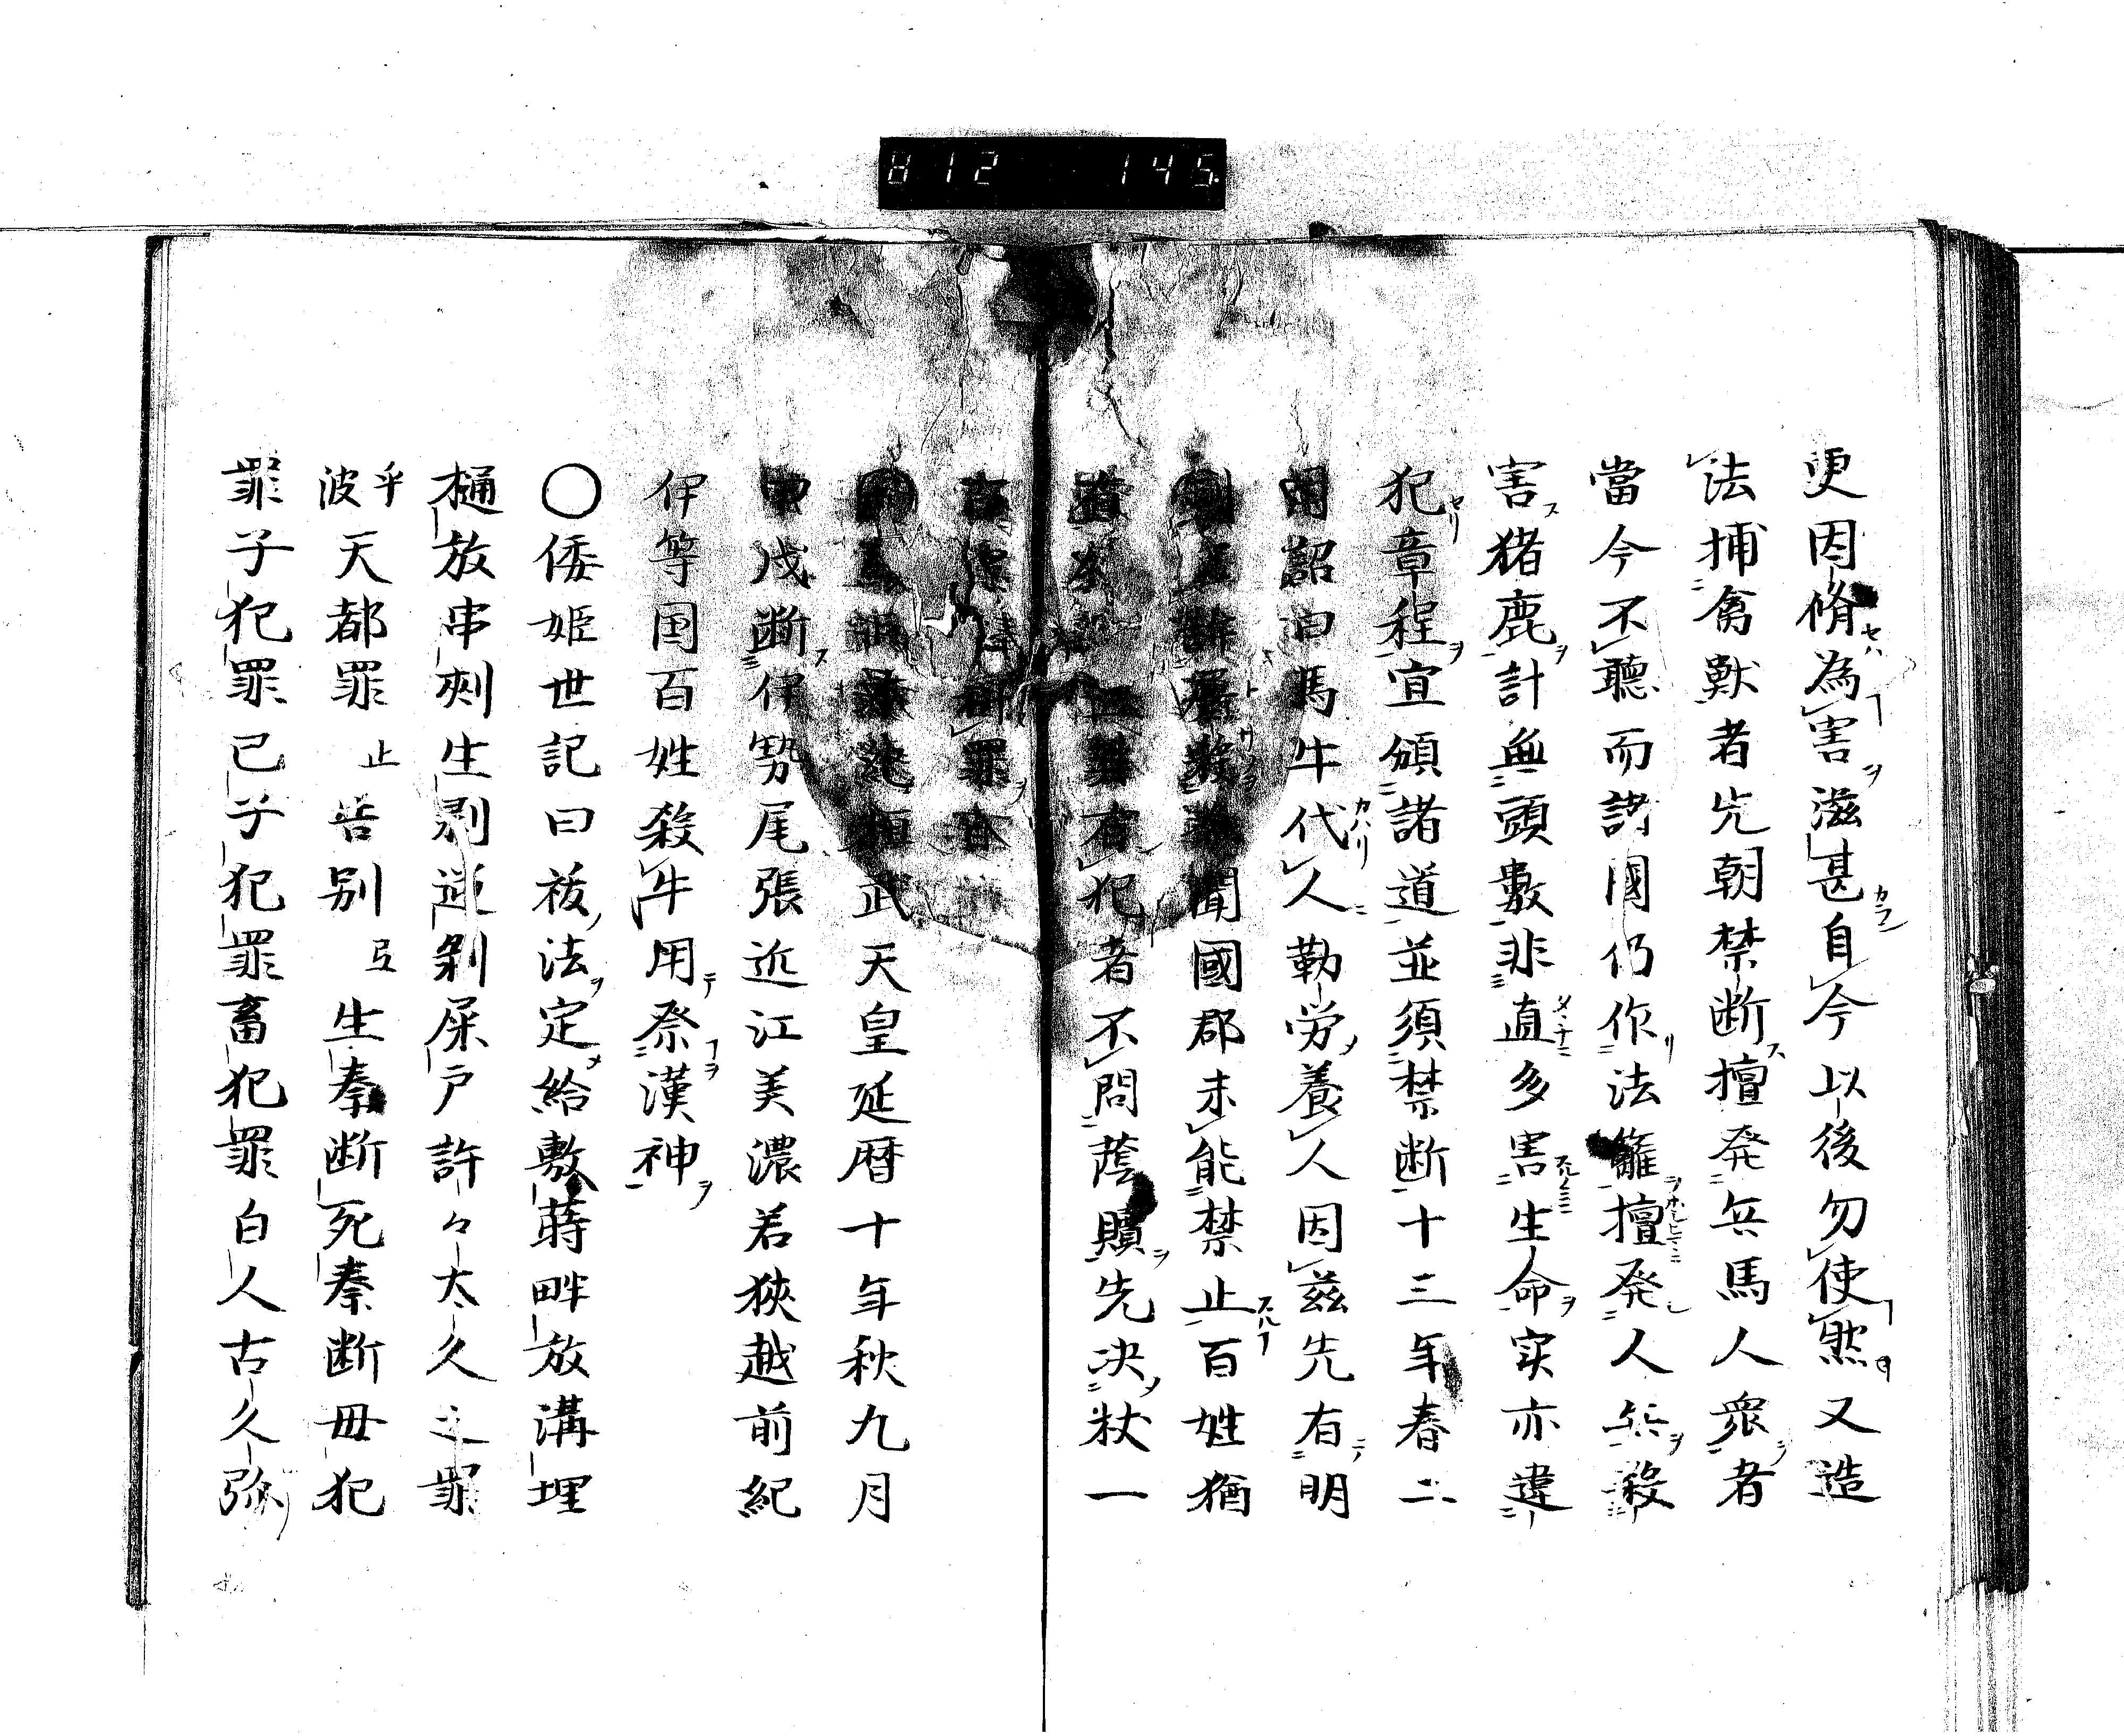 812 145
更因脩為害滋甚自今以後勿使然又造
法捕禽獣者先朝禁断擅発兵馬人衆者
當今不聴而諸國仍作法籬擅発人兵殺
害猪鹿計無頭數非直多害生命实亦違
犯章程宜頒諸道並須禁断十三年春二
月詔曰馬牛代人勤労養人因茲先有明
聞國郡未能禁止百姓猶
有犯者不問蔭贖先決杖一
罪
武天皇延暦十年秋九月
甲戌断伊勢尾張近江美濃若狹越前紀
伊等国百姓殺牛用祭漢神
〇倭姫世記曰祓法定給敷蒔畔放溝埋
樋放串刺生剥逆剝屎戸許々太久之罪
乎波天都罪止告別弖生秦断死秦断母犯
罪子犯罪己子犯罪畜犯罪白人古久弥